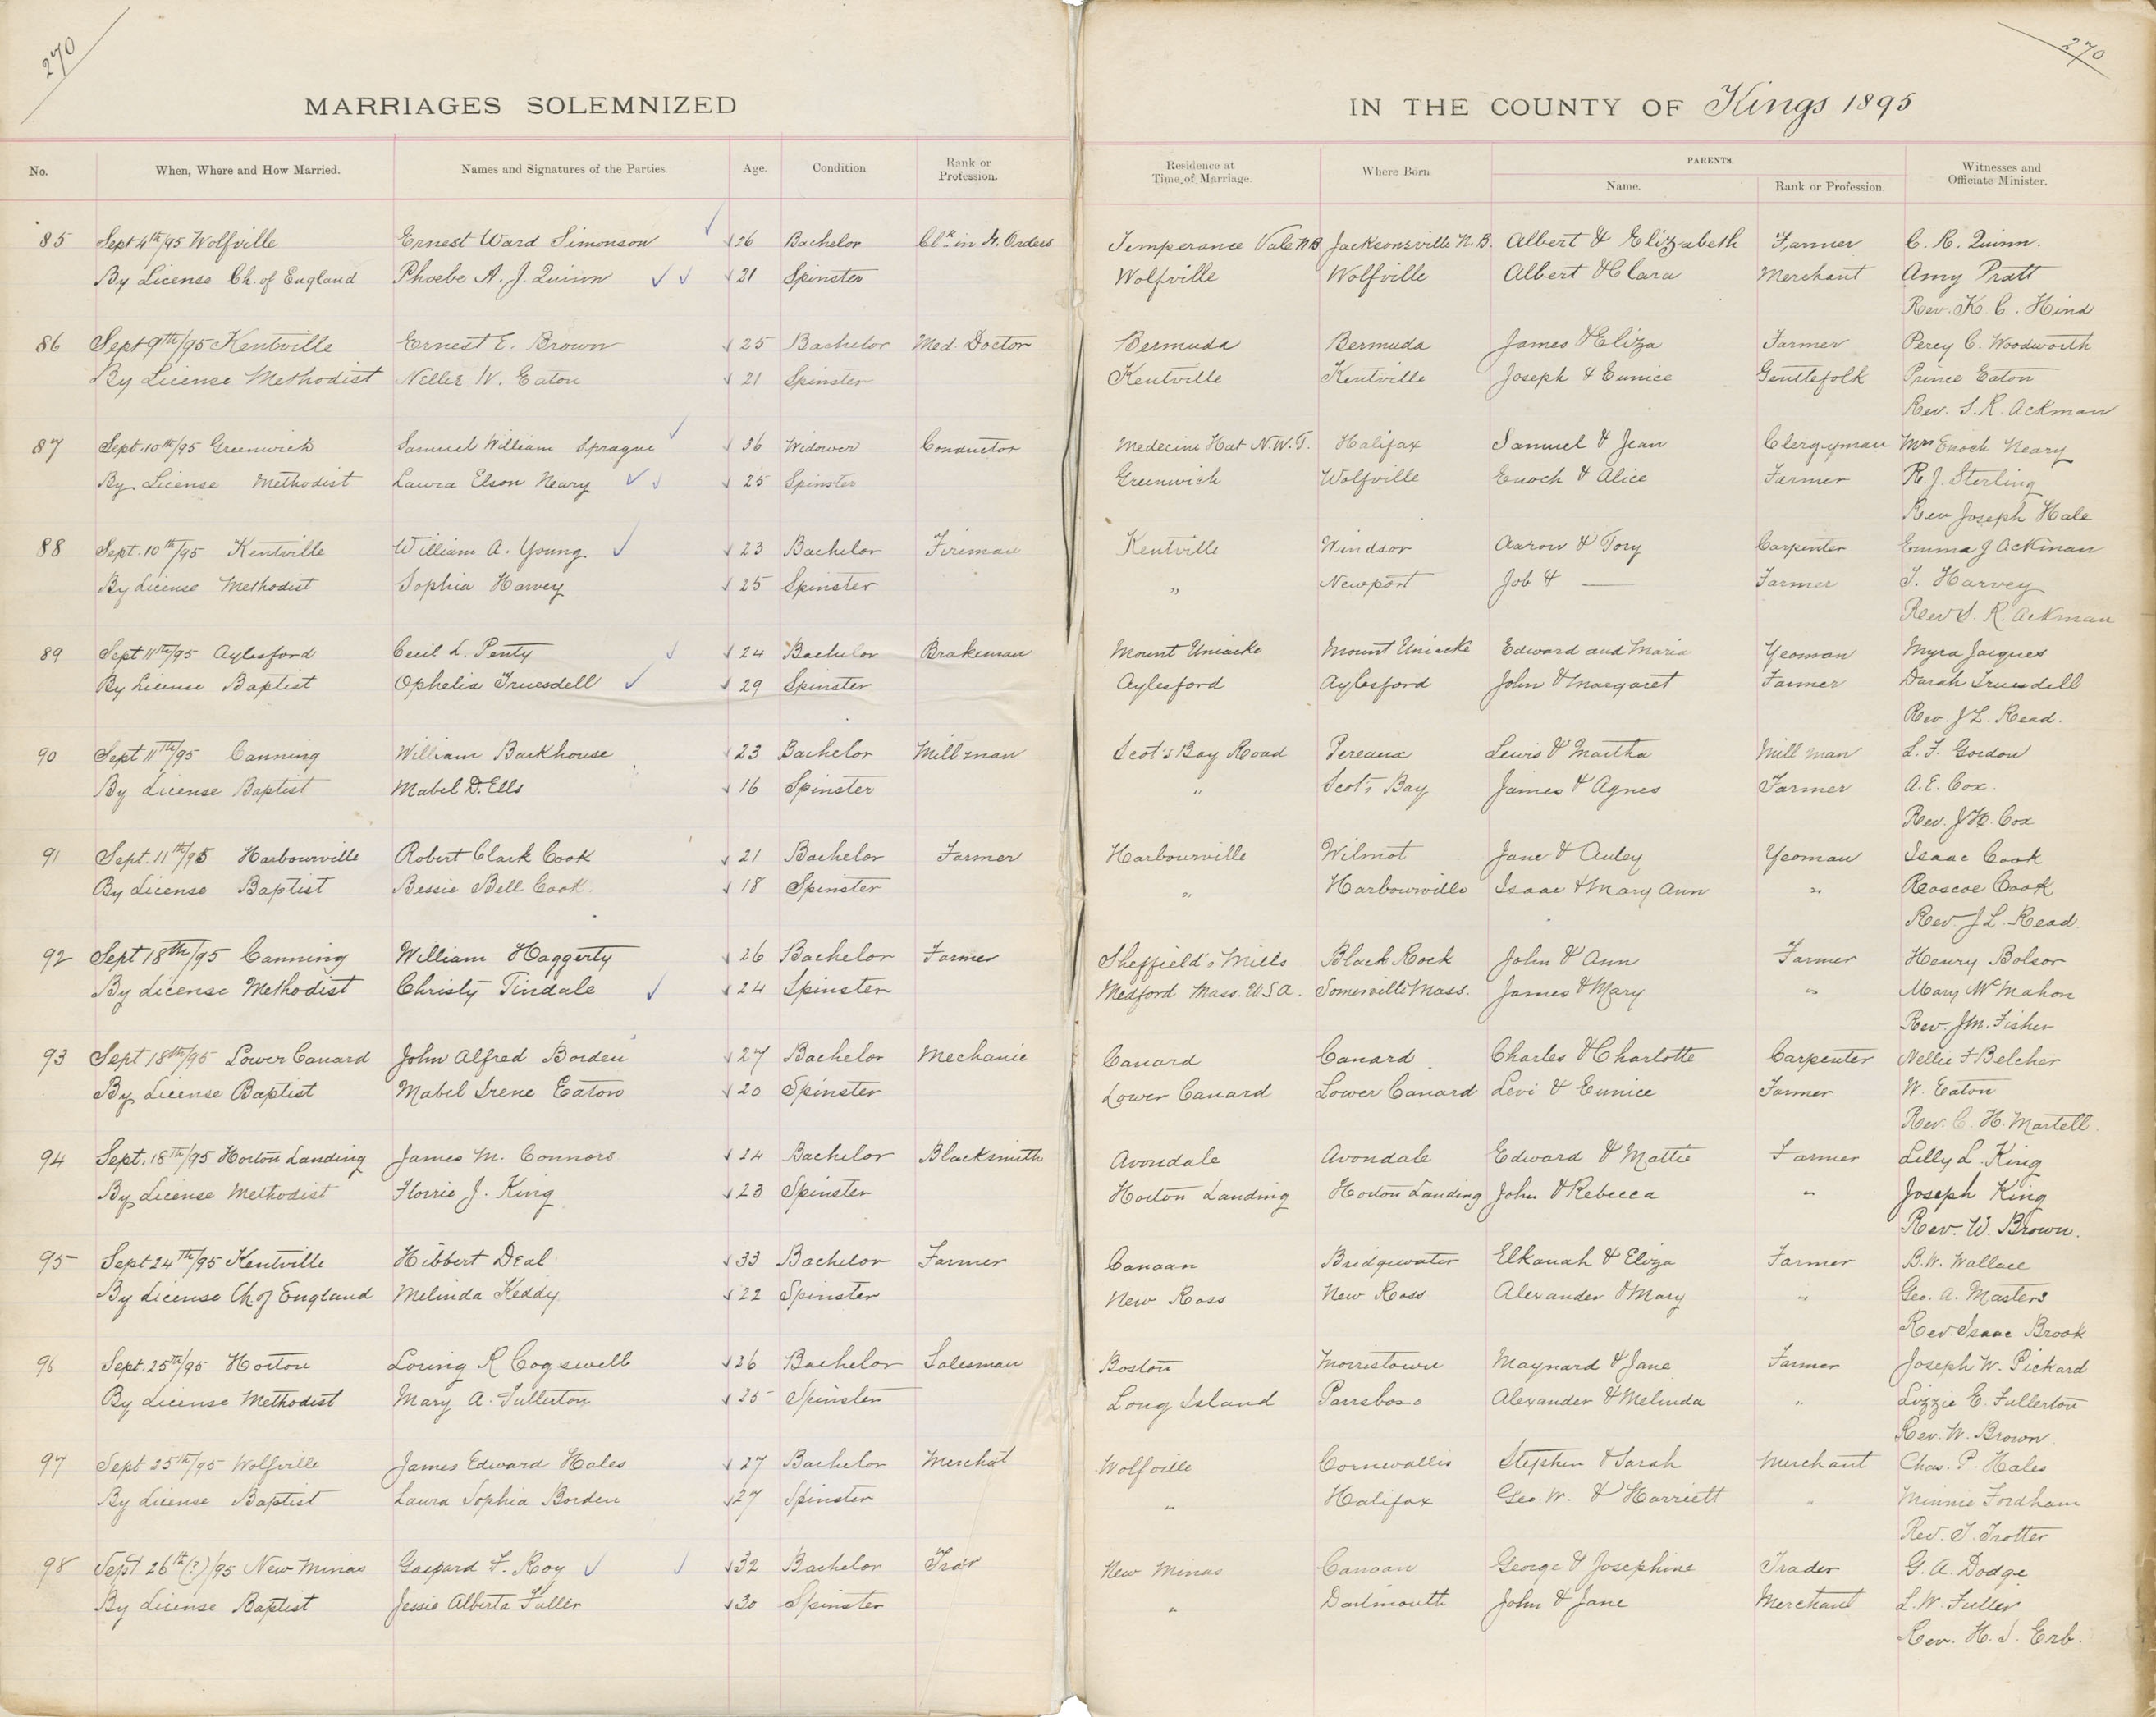 270
270
MARRIAGES SOLEMNIZED IN THE COUNTY OF Kings 1895
No. When, Where and How Married. Names and Signatures of the Parties. Age. Condition Rank or Profession. Residence at Time of Marriage. Where Born PARENTS. Name. Rank or Profession. Witnesses and Officiate Minister.
85 Sept 4th/95 Wolfville Ernest Ward Simonson 26 Bachelor Clk in H. Orders Temperance Vale N B Jacksonsville N. B. Albert & Elizabeth Farmer C. R. Quinn.
By License Ch. of England Phoebe A. J. Quinn 21 Spinster Wolfville Wolfville Albert & Clara Merchant Amy Pratt
Rev. K. C. Hind
86 Sept 9th/95 Kentville Ernest E. Brown 25 Bachelor Med. Doctor Bermuda Bermuda James & Eliza Farmer Percy C. Woodworth
By License Methodist Nellie W. Eaton 21 Spinster Kentville Kentville Joseph & Eunice Gentlefolk Prince Eaton
Rev. S. R. Ackman
87 Sept. 10th/95 Greenwich Samuel William Sprague 36 Widower Conductor Medecine Hat N.W.T. Halifax Samuel & Jean Clergyman Mrs Enoch Neary
By License Methodist Laura Elson Neary 25 Spinster Greenwich Wolfville Enoch & Alice Farmer R. J. Sterling
Rev Joseph Hale
88 Sept. 10th/95 Kentville William A. Young 23 Bachelor Fireman Kentville Windsor Aaron & Tory Carpenter Emma J Ackman
By License Methodist Sophia Harvey 25 Spinster " Newport Job & — Farmer T. Harvey
Rev S. R. Ackman
89 Sept 11th/95 Aylesford Cecil L. Penty 24 Bachelor Brakeman Mount Uniacke Mount Uniacke Edward and Maria Yeoman Myra Jacques
By License Baptist Ophelia Truesdell 29 Spinster Aylesford Aylesford John & Margaret Farmer Darah Truesdell
Rev. J L. Read.
90 Sept 11th/95 Canning William Barkhouse 23 Bachelor Mill man Scot's Bay Road Pereaux Lewis & Martha Mill man L. F. Gordon
By License Baptist Mabel D. Ells 16 Spinster " Scot's Bay James & Agnes Farmer A. E. Cox.
Rev. J H. Cox
91 Sept. 11th/95 Harbourville Robert Clark Cook 21 Bachelor Farmer Harbourville Wilmot Jane & Auley Yeoman Isaac Cook
By License Baptist Bessie Bell Cook. 18 Spinster " Harbourville Isaac & Mary Ann " Roscoe Cook
Rev J L. Read.
92 Sept 18th/95 Canning William Haggerty 26 Bachelor Farmer Sheffield's Mills Black Rock John & Ann Farmer Henry Bolsor
By License Methodist Christy Tindale 24 Spinster Medford Mass. U.S.A. Somerville Mass. James & Mary " Mary McMahon
Rev. J M. Fisher
93 Sept 18th/95 Lower Canard John Alfred Borden 27 Bachelor Mechanic Canard Canard Charles & Charlotte Carpenter Nellie F Belcher
By License Baptist Mabel Irene Eaton 20 Spinster Lower Canard Lower Canard Levi & Eunice Farmer W. Eaton
Rev. C. H. Martell.
94 Sept. 18th/95 Horton Landing James M. Connors 24 Bachelor Blacksmith Avondale Avondale Edward & Mattie Farmer Lilly L. King
By License Methodist Florrie J. King 23 Spinster Horton Landing Horton Landing John & Rebecca " Joseph King
Rev. W. Brown.
95 Sept 24th/95 Kentville Hibbert Deal 33 Bachelor Farmer Canaan Bridgewater Elkanah & Eliza Farmer B. W. Wallace
By License Ch of England Melinda Keddy 22 Spinster New Ross New Ross Alexander & Mary " Geo. A. Masters
Rev. Isaac Brook
96 Sept. 25th/95 Horton Loring R Cogswell 26 Bachelor Salesman Boston Morristown Maynard & Jane Farmer Joseph W. Pickard
By License Methodist Mary A. Fullerton 25 Spinster Long Island Parrsboro Alexander & Melinda " Lizzie E. Fullerton
Rev. W. Brown.
97 Sept 25th/95 Wolfville James Edward Hales 27 Bachelor Merchat Wolfville Cornwallis Stephen & Sarah Merchant Chas. P. Hales
By License Baptist Laura Sophia Borden 27 Spinster " Halifax Geo. W. & Harriett " Minnie Fordham
Rev. T. Trotter
98 Sept 26th(?)/95 New Minas Gaspard F. Roy 32 Bachelor Tradr New Minas Canaan George & Josephine Trader G. A. Dodge
By License Baptist Jessie Alberta Fuller 30 Spinster " Dartmouth John & Jane Merchant L. W. Fuller
Rev. H. S. Erb.